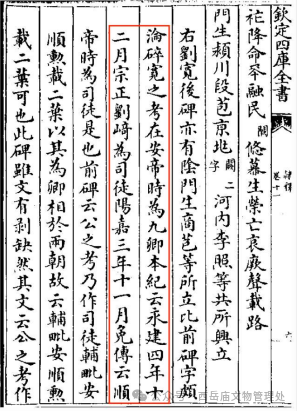 欽定四庫全書
隸釋
卷十一
六
祀降命岑融民闕悠慕生榮亡哀厥聲載路
門生潁川段苞京地闕二字河内李照等共所興立
右劉寛後碑亦有陰門生商苞等所立比前碑字頗
淪碎寛之考在安帝時為九卿本紀云永建四年十
二月宗正劉﨑為司徒陽嘉三年十一月免傳云順
帝時為司徒是也前碑云公之考乃作司徒輔毗安
順勲載二葉以其為卿相於兩朝故云輔毗安順勲
載二葉可也此碑雖文有剥缺然其文云公之考作
公众号·西岳庙文物管理处